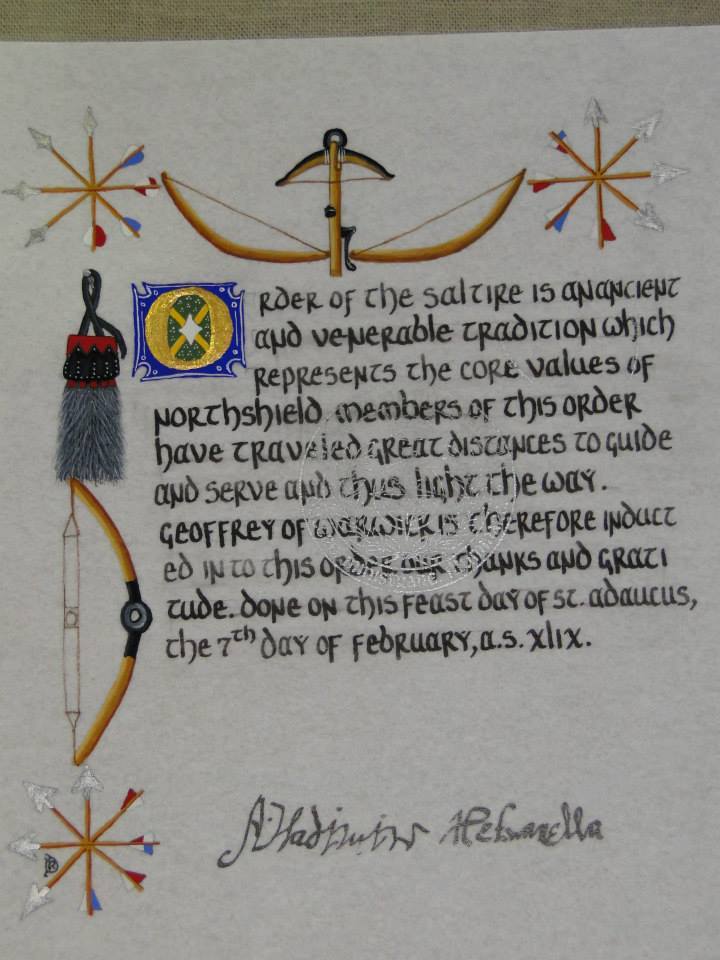 Order of the Saltire is an ancient
and venerable tradition which
represents the core values of
Northshield members of this order
have traveled great distances to guide
and serve and thus light the way.
Geoffrey of Warwick is therefore induct
ed in to this order our thanks and grati
tude. Done on this feast day of St. Adaucus,
the 7th day of February, A.S. XLIX.